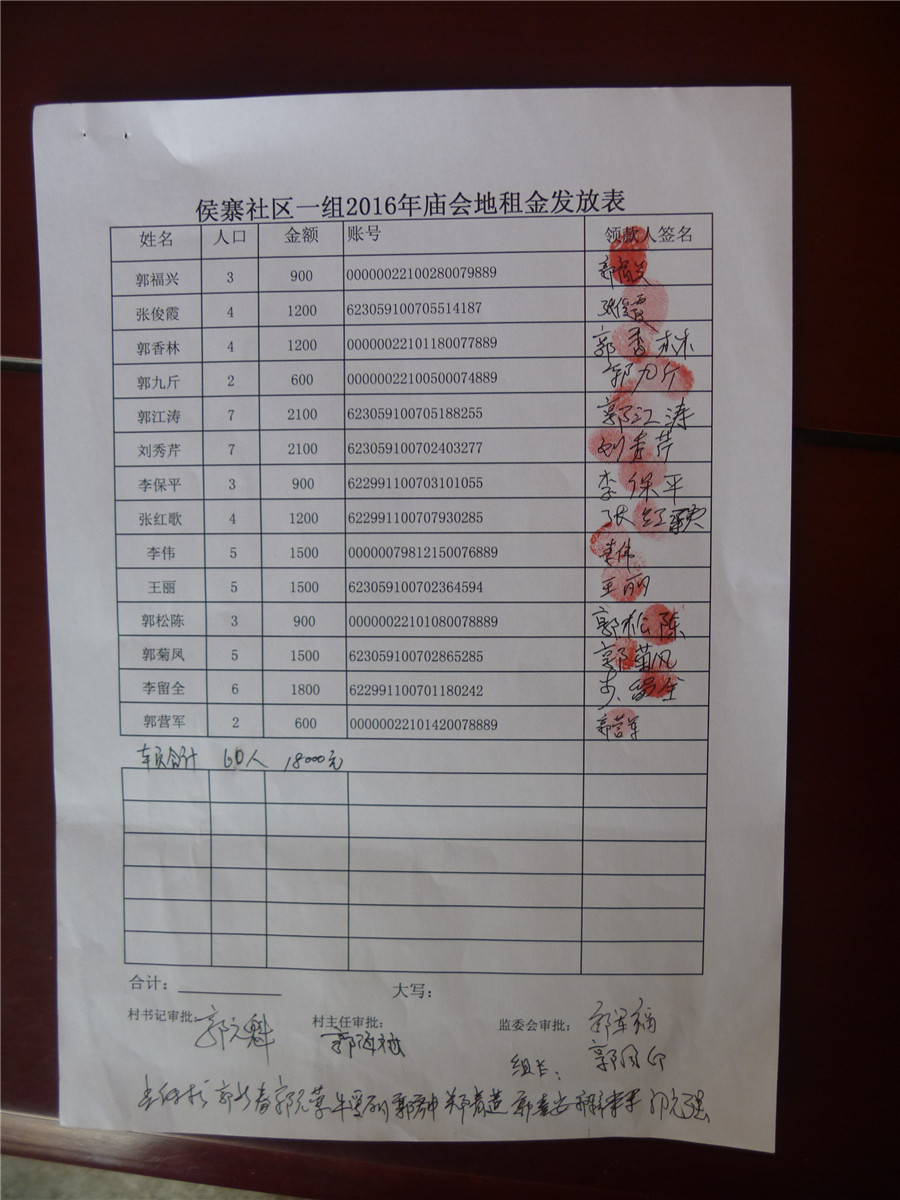 侯寨社区一组2016年庙会地租金发放表
姓名 人口 金额 账号 领款人签名
郭福兴 3 900 00000022100280079889 郭福兴
张俊霞 4 1200 623059100705514187 张俊霞
郭香林 4 1200 00000022101180077889 郭香林
郭九斤 2 600 00000022100500074889 郭九斤
郭江涛 7 2100 623059100705188255 郭江涛
刘秀芹 7 2100 623059100702403277 刘秀芹
李保平 3 900 622991100703101055 李保平
张红歌 4 1200 622991100707930285 张红歌
李伟 5 1500 00000079812150076889 李伟
王丽 5 1500 623059100702364594 王丽
郭松陈 3 900 00000022101080078889 郭松陈
郭菊凤 5 1500 623059100702865285 郭菊凤
李留全 6 1800 622991100701180242 李留全
郭营军 2 600 00000022101420078889 郭营军
本页合计 60人 18000元
合计： 大写：
村书记审批： 村主任审批： 监委会审批：
组长：